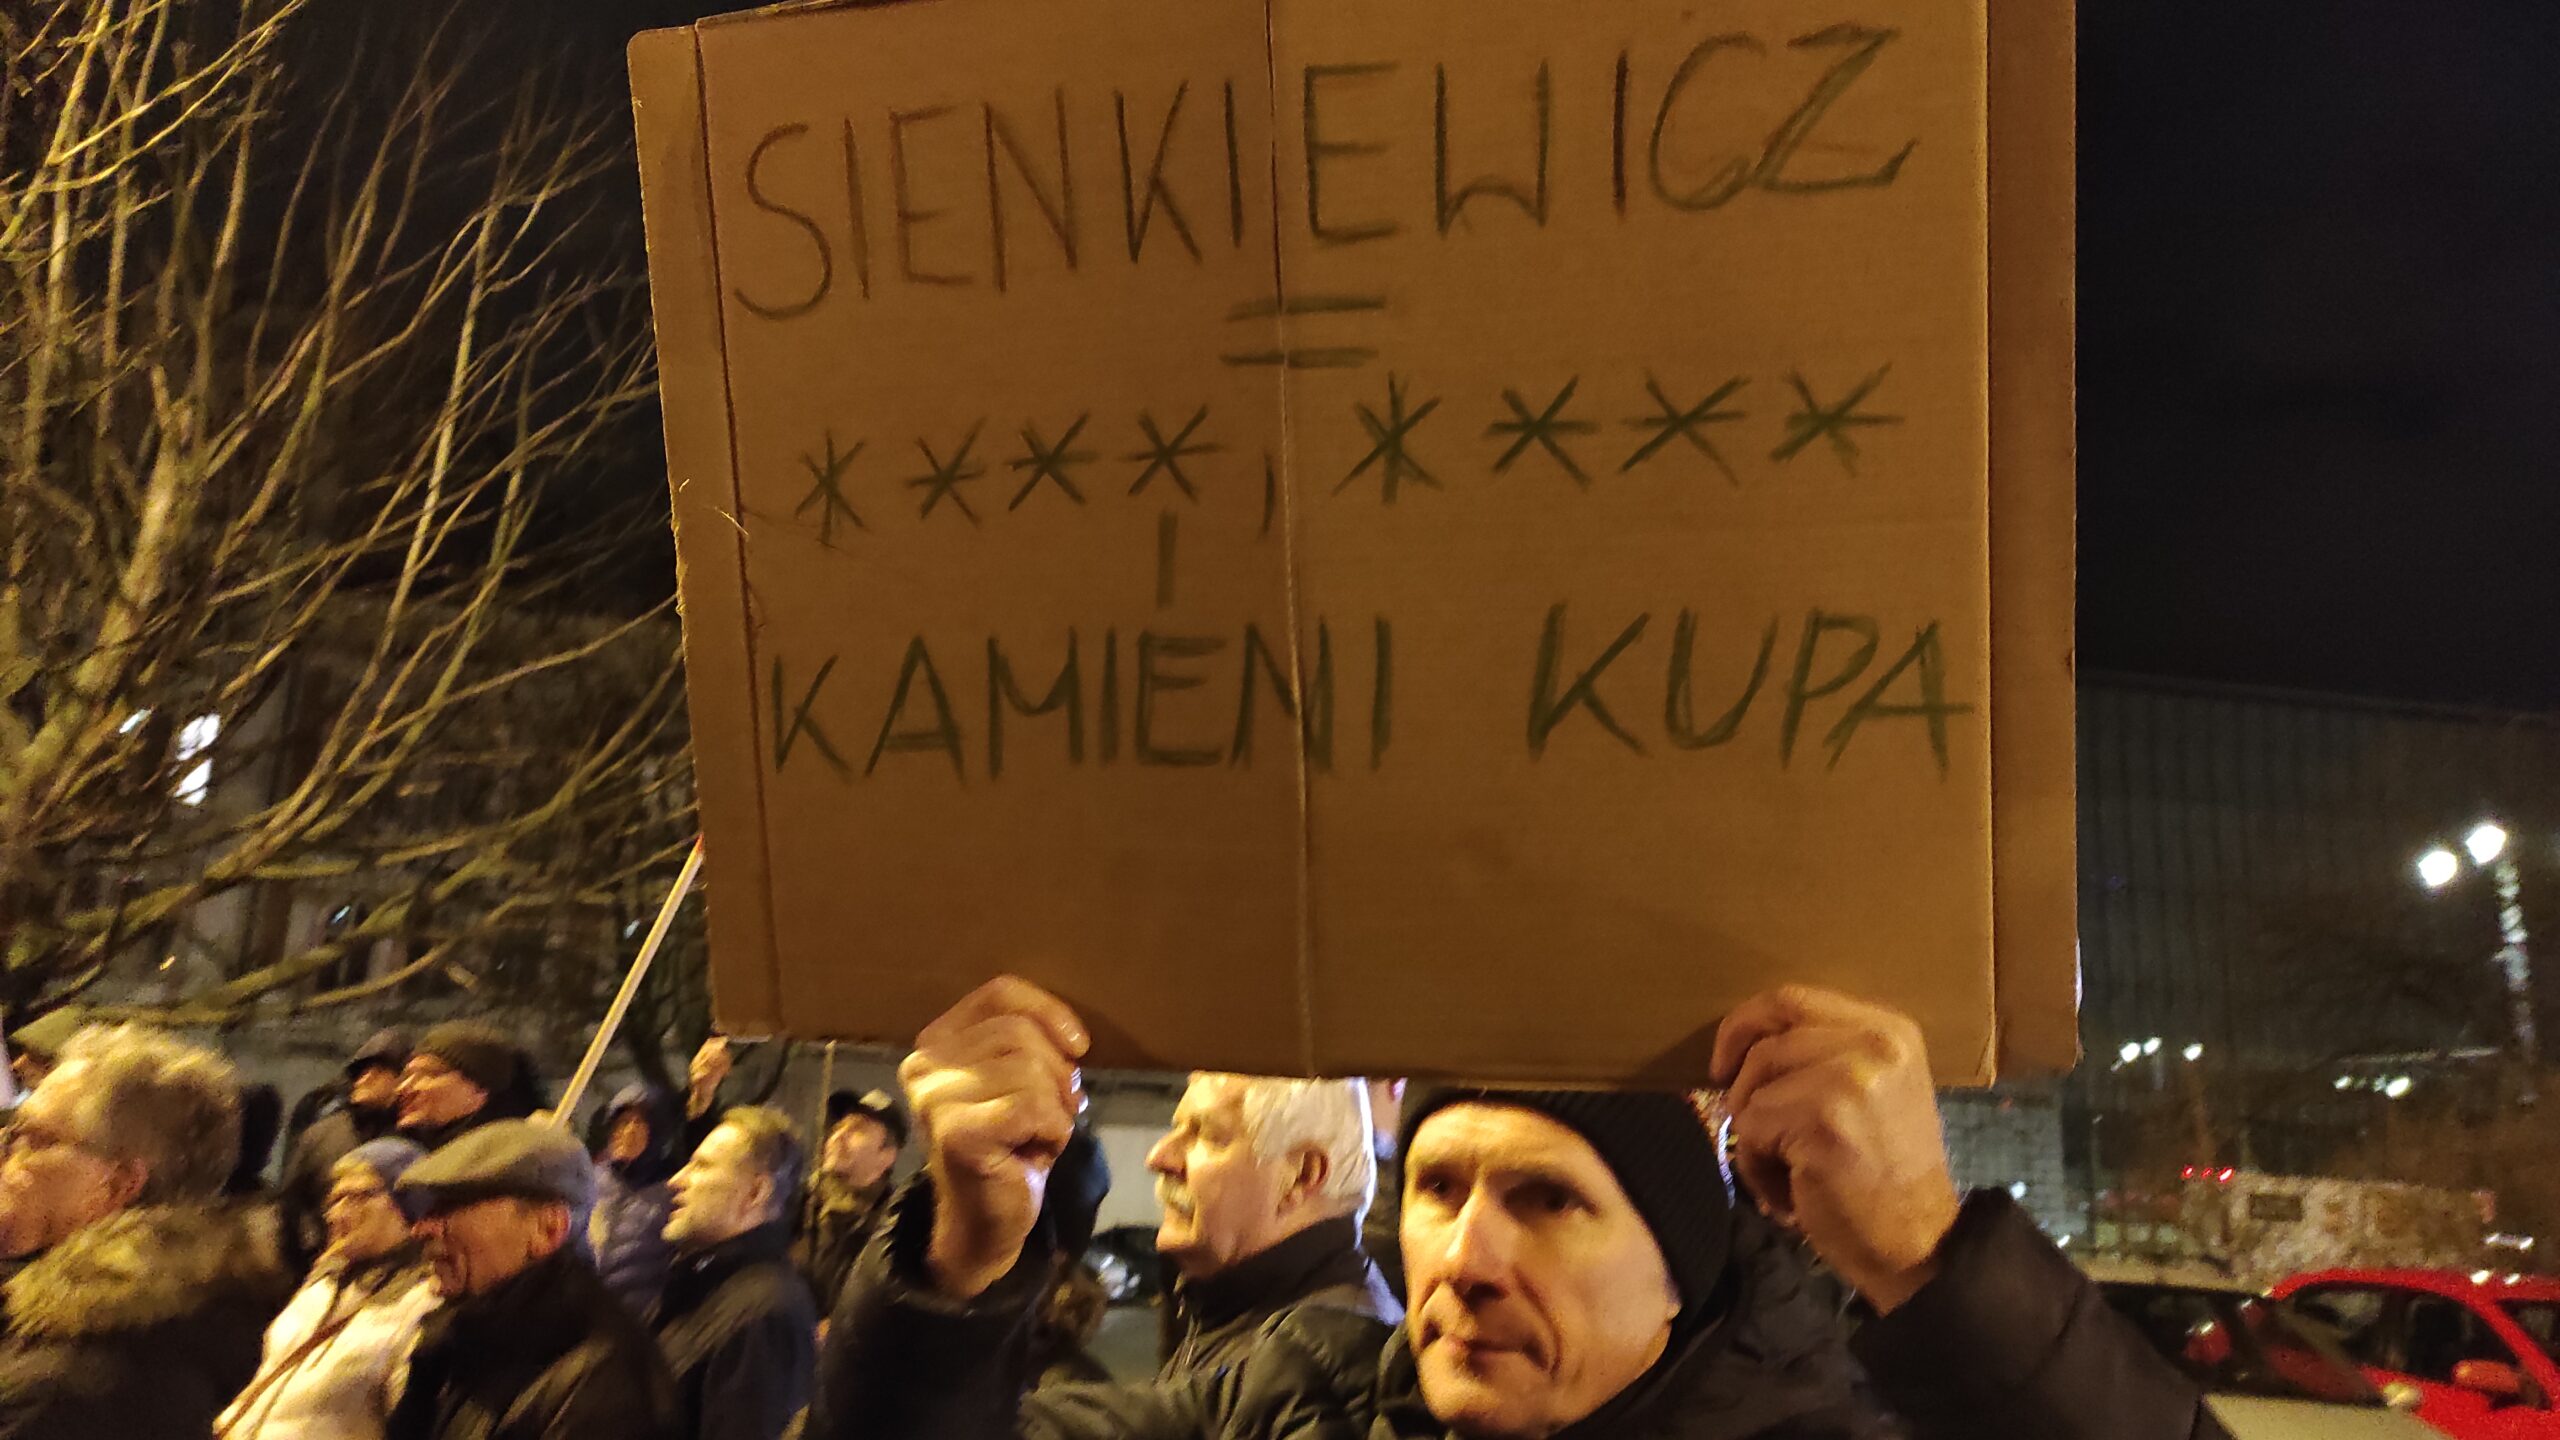 SIENKIEWICZ
=
****, ****
I
KAMIENI KUPA